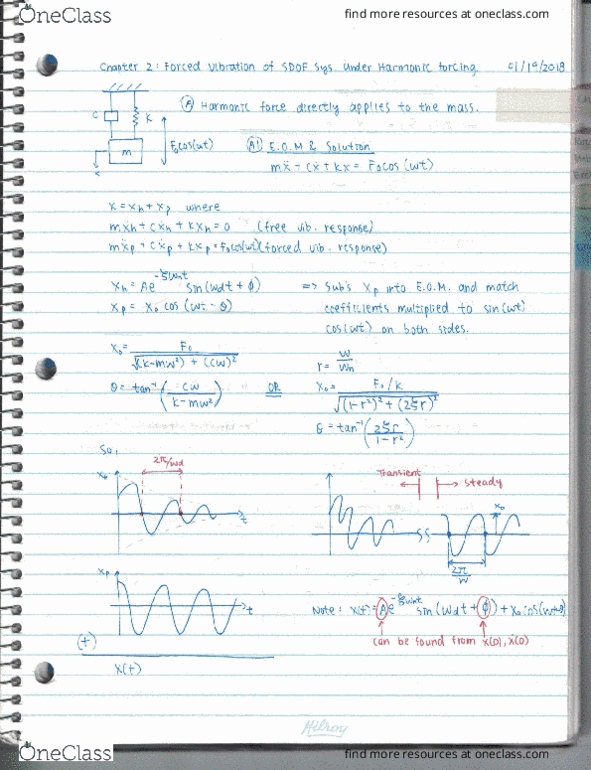 OneClass
find more resources at oneclass.com
Chapter 2: Forced Vibration of SDOF Sys. Under Harmonic forcing. 01/10/2018
C K
m
F₀cos(ωt)
x
(A) Harmonic force directly applies to the mass.
(A1) E.O.M & Solution
mẍ + cẋ + kx = F₀cos(ωt)
x = xₕ + xₚ where
mẍₕ + cẋₕ + kxₕ = 0 (free vib. response)
mẍₚ + cẋₚ + kxₚ = F₀cos(ωt) (forced vib. response)
xₕ = Ae^(-ζωnt) sin(ωdt + ϕ) => Sub's xₚ into E.O.M. and match
xₚ = x₀ cos(ωt - θ) coefficients multiplied to sin(ωt)
cos(ωt) on both sides.
x₀ = F₀ / √((k-mω²) + (cω)² r = ω/ωn
θ = tan⁻¹(cω / k-mω²) OR x₀ = F₀/k / √((1-r²)² + (2ζr)²
θ = tan⁻¹(2ζr / 1-r²)
So,
2π/ωd
xₕ
t
Transient steady
x₀
2π/ω
xₚ
t
Note: x(t) = Ae^(-ζωnt) sin(ωdt + ϕ) + x₀ cos(ωt-θ)
can be found from x(0), ẋ(0)
(+)
x(t)
Hilroy
OneClass
find more resources at oneclass.com